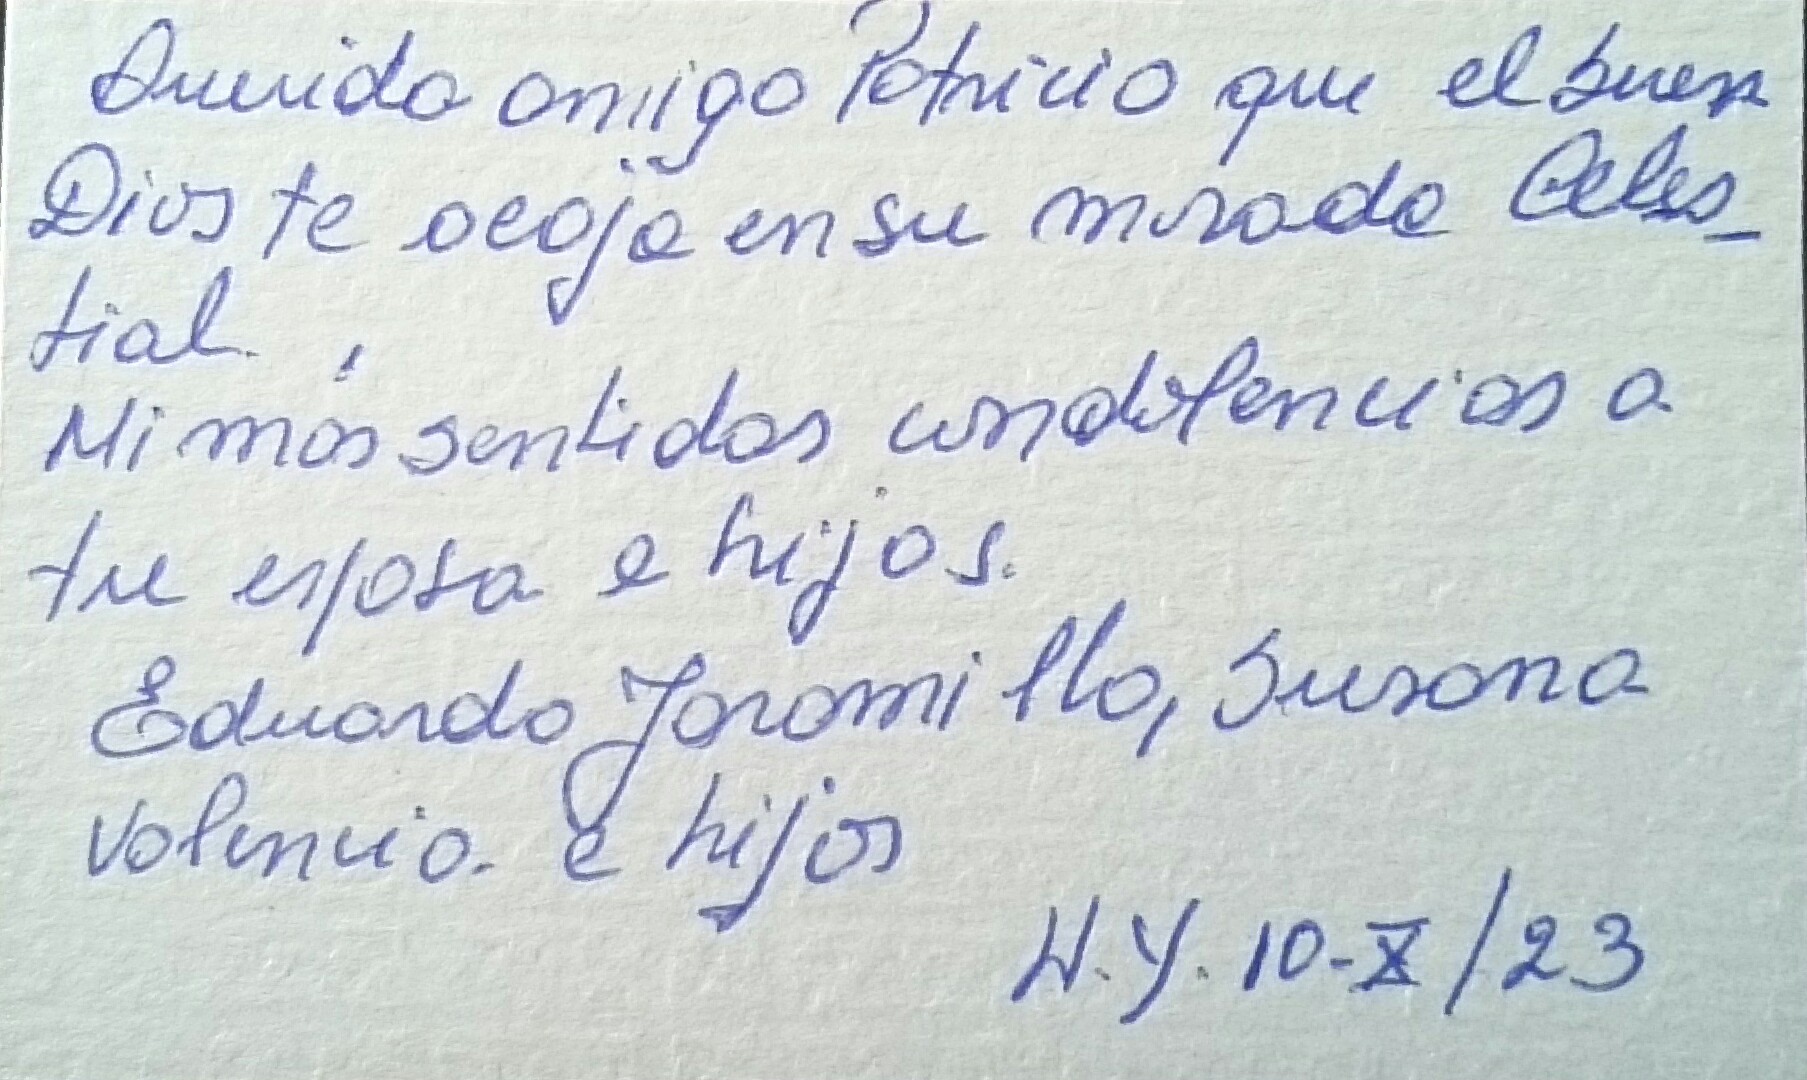 Querido amigo Patricio que el buen
Dios te acoja en su morada Celes_
tial.
Mi más sentidas condolencias a
tu esposa e hijos.
Eduardo Jaramillo, Susana
Valencia. e hijos
N.Y. 10-X/23